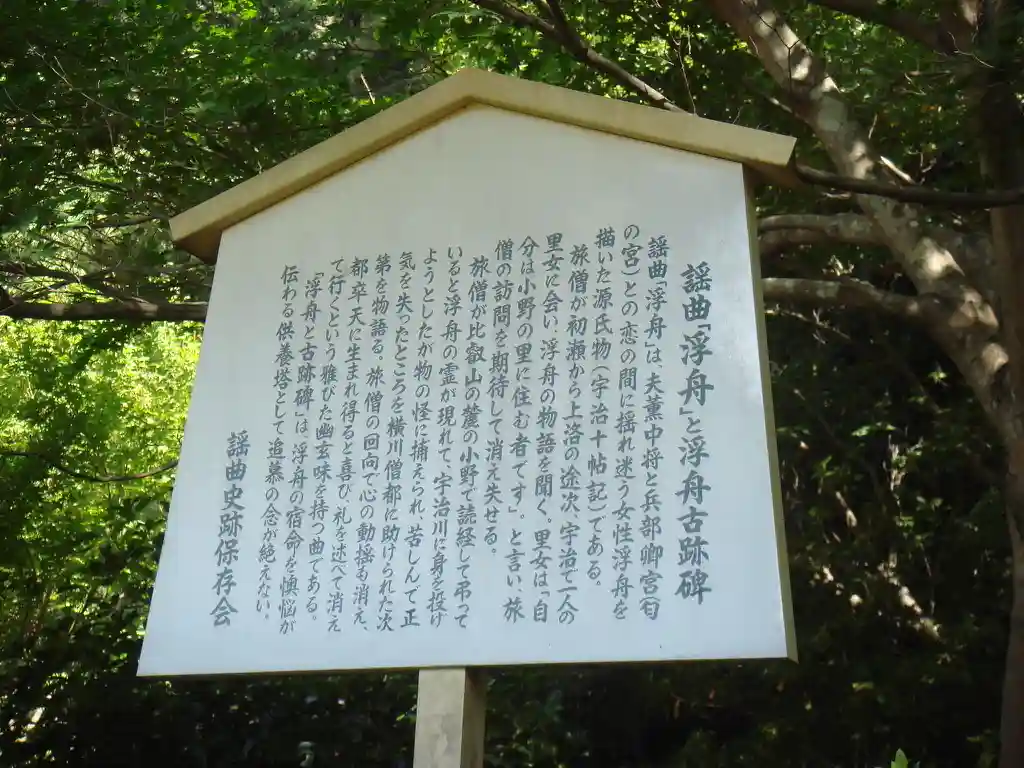 謡曲「浮舟」と浮舟古跡碑
謡曲「浮舟」は、夫薫中将と兵部卿宮（匂
の宮）との恋の間に揺れ迷う女性浮舟を
描いた源氏物（宇治十帖・記）である。
旅僧が初瀬から上洛の途次、宇治で一人の
里女に会い、浮舟の物語を聞く。里女は「自
分は小野の里に住む者です」。と言い、旅
僧の訪問を期待して消え失せる。
旅僧が比叡山の麓の小野で読経して弔って
いると浮舟の霊が現れて、宇治川に身を投げ
ようとしたが物の怪に捕えられ、苦しんで正
気を失ったところを横川僧都に助けられた次
第を物語る。旅僧の回向で心の動揺も消え、
都卒天に生まれ得ると喜び、礼を述べて消え
て行くという雅びた幽玄味を持つ曲である。
「浮舟と古跡碑」は、浮舟の宿命を慎悩が
伝わる供養塔として追慕の念が絶えない。
謡曲史跡保存会